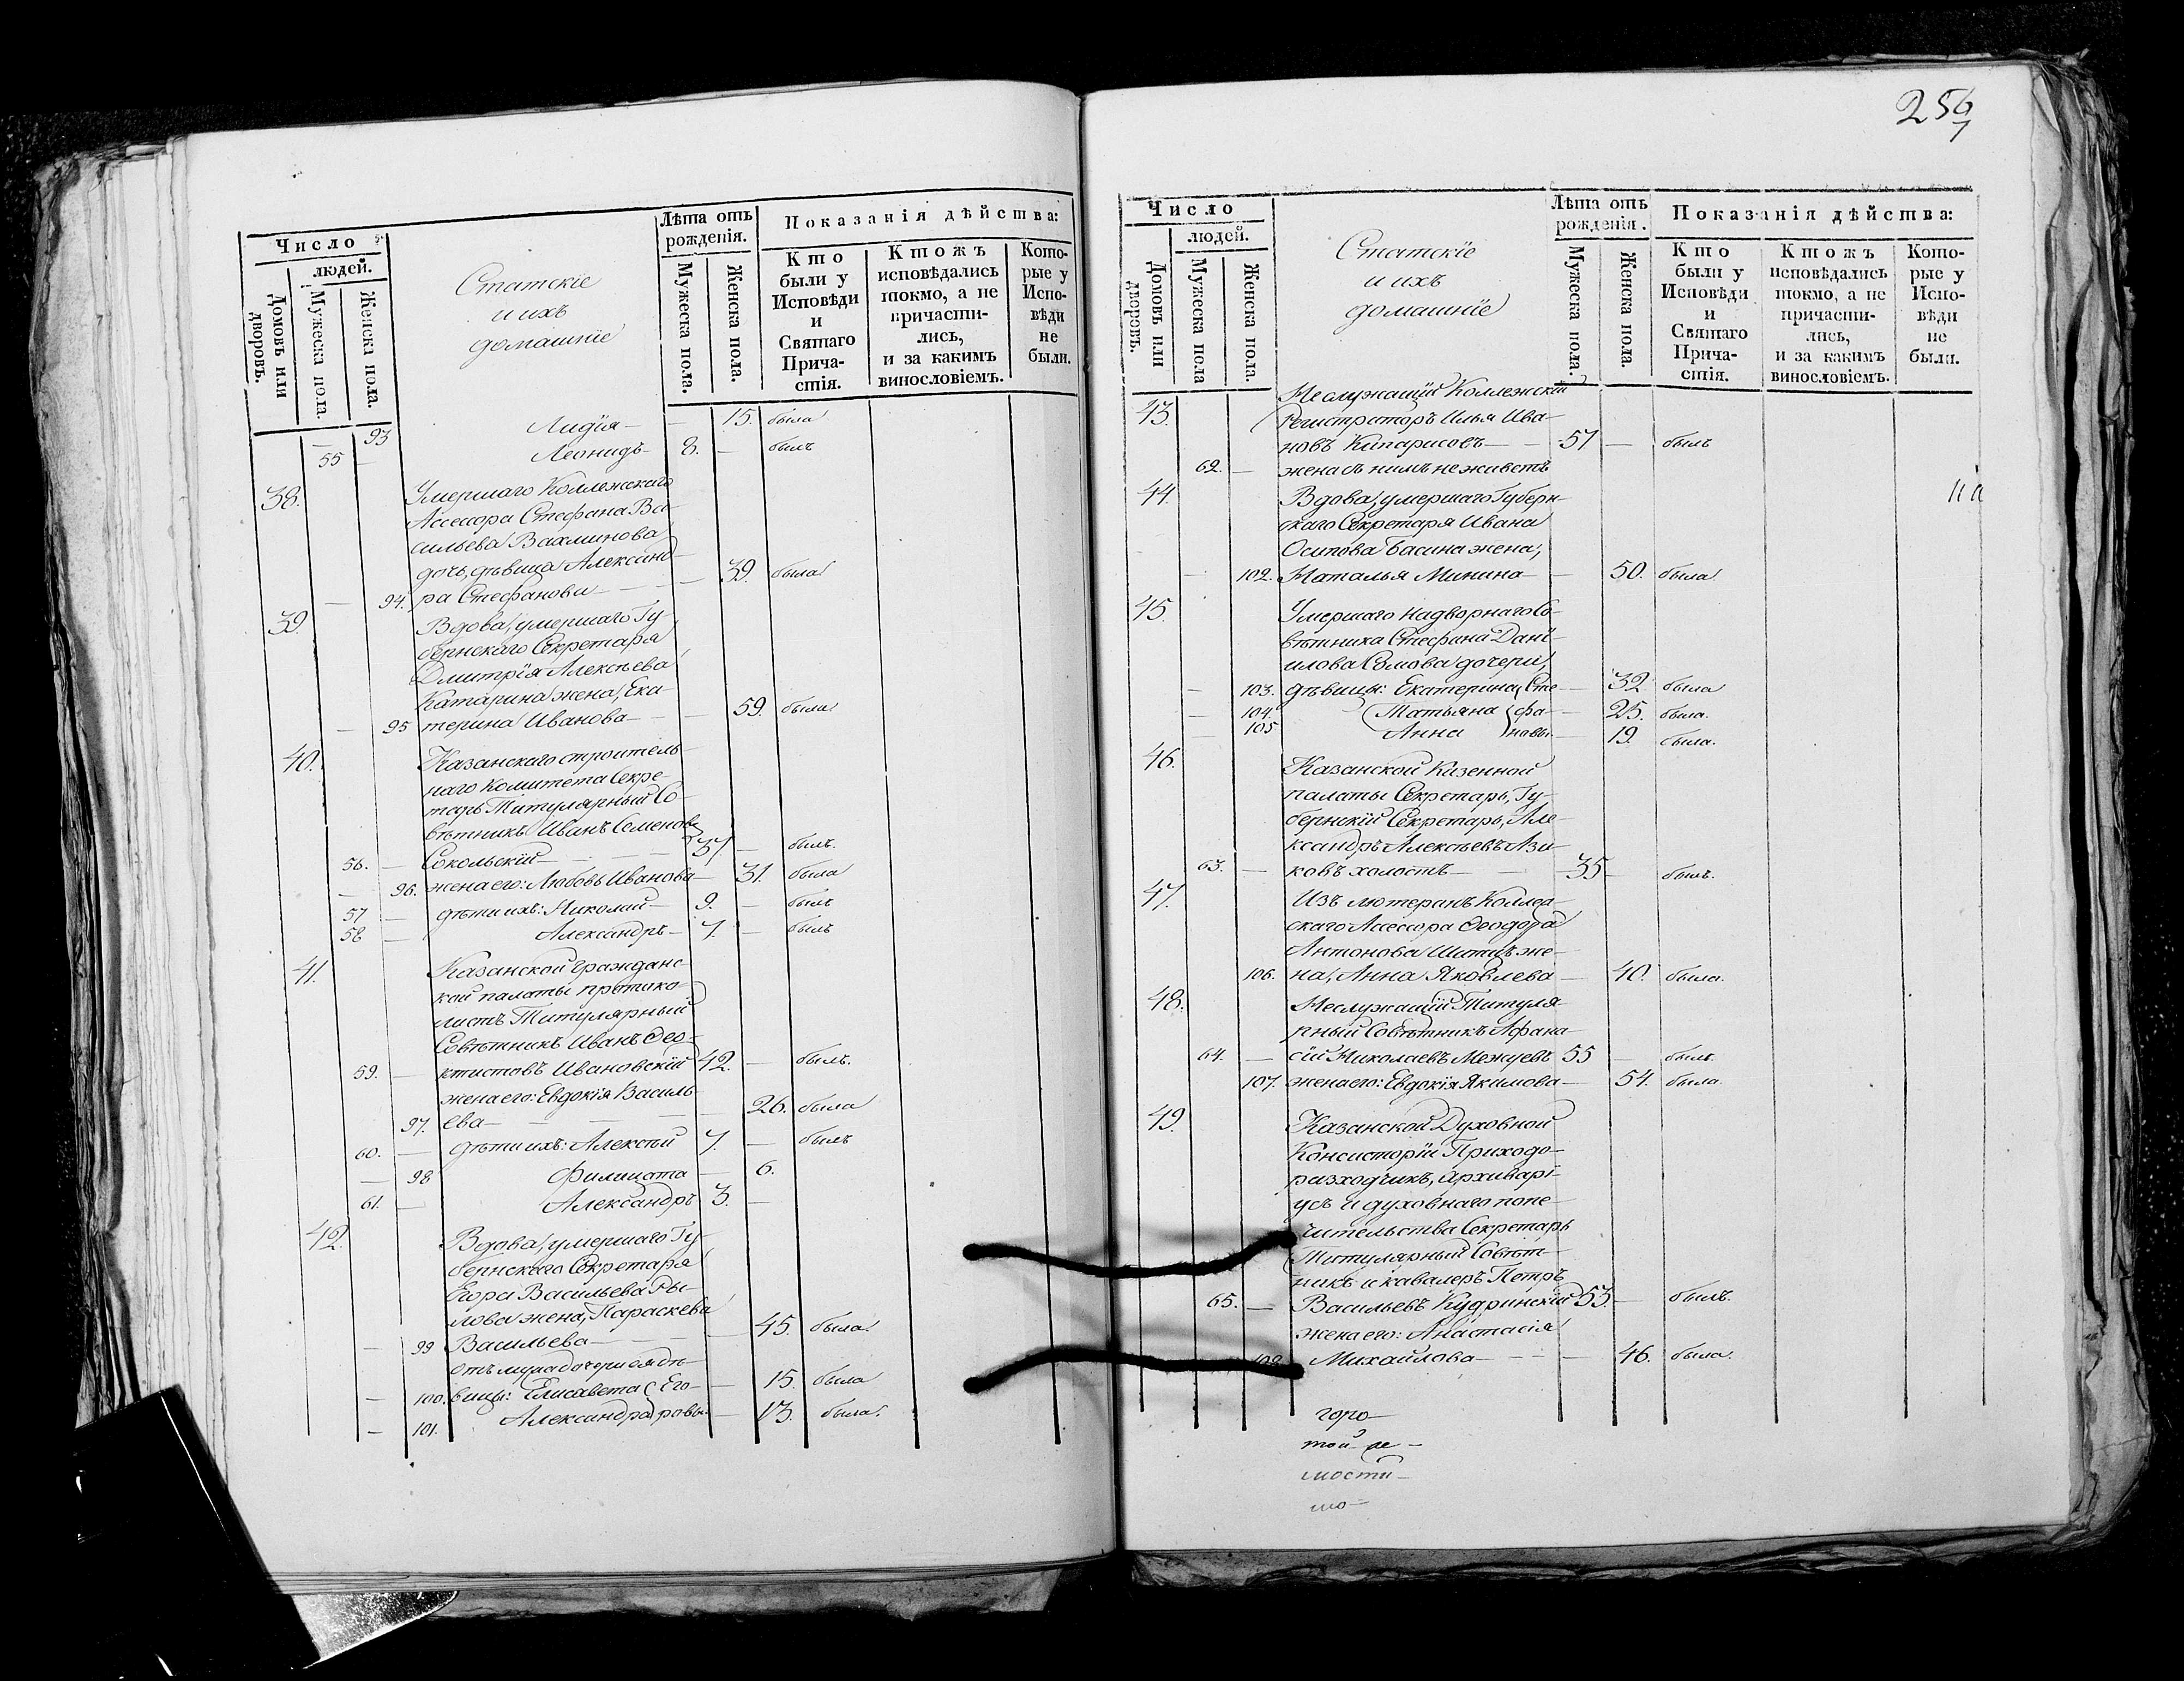 Число
людей.
Домовъ или дворовъ.
Мужеска пола.
Женска пола.
Статскіе
и ихъ
домашніе
Лѣта отъ
рожденія.
Мужеска пола.
Женска пола.
Показанія дѣйства:
Кто
были у
Исповѣди
и
Святаго
Прича-
стія.
Ктожъ
исповѣдались
токмо, а не
причасти-
лись,
и за какимъ
винословіемъ.
Кото-
рые у
Испо-
вѣди
не
были.
— 93 Лидія — — 15. была
55 — Леонидъ — 8. — былъ
38. Умершаго Коллежскаго
Ассесора Стефана Ва-
сильева Вахминова
дочь, дѣвица Александ-
— 94. ра Стефанова — — 39. была
39. Вдова, умершаго Гу-
бернскаго Секретаря
Дмитрія Алексѣева
Катарина жена, Ека-
— 95 терина Иванова — — 59. была
40. Казанскаго строитель-
наго Комитета Секре-
тарь Титулярный Со-
вѣтникъ Иванъ Семеновъ
56. — Сокольскій — 37 — былъ.
— 96. жена его: Любовь Иванова — 31. была
57 — дѣти ихъ: Николай — 9. — былъ
58 — Александръ — 7. — былъ
41. Казанской Гражданс-
кой палаты протоко-
листъ Титулярный
Совѣтникъ Иванъ Ѳео-
59. — ктистовъ Ивановскій 42. — былъ.
жена его: Евдокія Василь-
97. ева — — 26. была
60. — дѣти ихъ: Алексѣй 7. — былъ
— 98 Филицата — 6.
61. — Александръ 3. —
42. Вдова, умершаго Гу-
бернскаго Секретаря
Егора Васильева Ры-
лова жена, Параскева
— 99 Васильева — — 45. была.
отъ мужа дочери ея дѣ-
— 100. вицы: Елисавета Его- — 15. была
— 101. Александра ровы — 13. была.
256
7
Число
людей.
Домовъ или дворовъ.
Мужеска пола
Женска пола.
Статскіе
и ихъ
домашніе
Лѣта отъ
рожденія.
Мужеска пола.
Женска пола.
Показанія дѣйства:
Кто
были у
Исповѣди
и
Святаго
Прича-
стія.
Ктожъ
исповѣдались
токмо, а не
причасти-
лись,
и за какимъ
винословіемъ.
Кото-
рые у
Испо-
вѣди
не
были.
43. Неслужащій Коллежскій
Регистраторъ Илья Ива-
новъ Кипарисовъ — 57 — былъ
62. — жена съ нимъ не живетъ
44. Вдова, умершаго Губерн-
скаго Секретаря Ивана
Осипова Басина жена,
— 102. Наталья Минина — — 50. была
45. Умершаго Надворнаго Со-
вѣтника Стефана Дані-
илова Сомова дочери,
— 103. дѣвицы: Екатерина Сте- — 32 была
— 104. Татьяна фа- — 25. была.
— 105 Анна новы — 19. была.
46. Казанской Казенной
палаты Секретарь, Гу-
бернскій Секретарь, Але-
ксандръ Алексѣевъ Ази-
63. — ковъ холостъ — 35 — былъ.
47. Изъ лютеранъ Коллеж-
скаго Ассесора Ѳеодора
Антонова жe-
106. на, Анна Яковлева — 40. была.
48. Неслужащій Титуля-
рный Совѣтникъ Афана-
64. — сій Николаевъ Межуевъ 55 — былъ.
107. жена его: Евдокія Якимова — 54. была.
49. Казанской Духовной
Консисторіи Приходо-
разходчикъ, Архиварі-
усъ и духовнаго попе-
чительства Секретарь
Титулярный Совѣт-
никъ и кавалеръ Петръ
65. — Васильевъ Кудринскій 53. — былъ.
жена его: Анастасія
Михайлова — — 46. была.
горо—
той
мости—